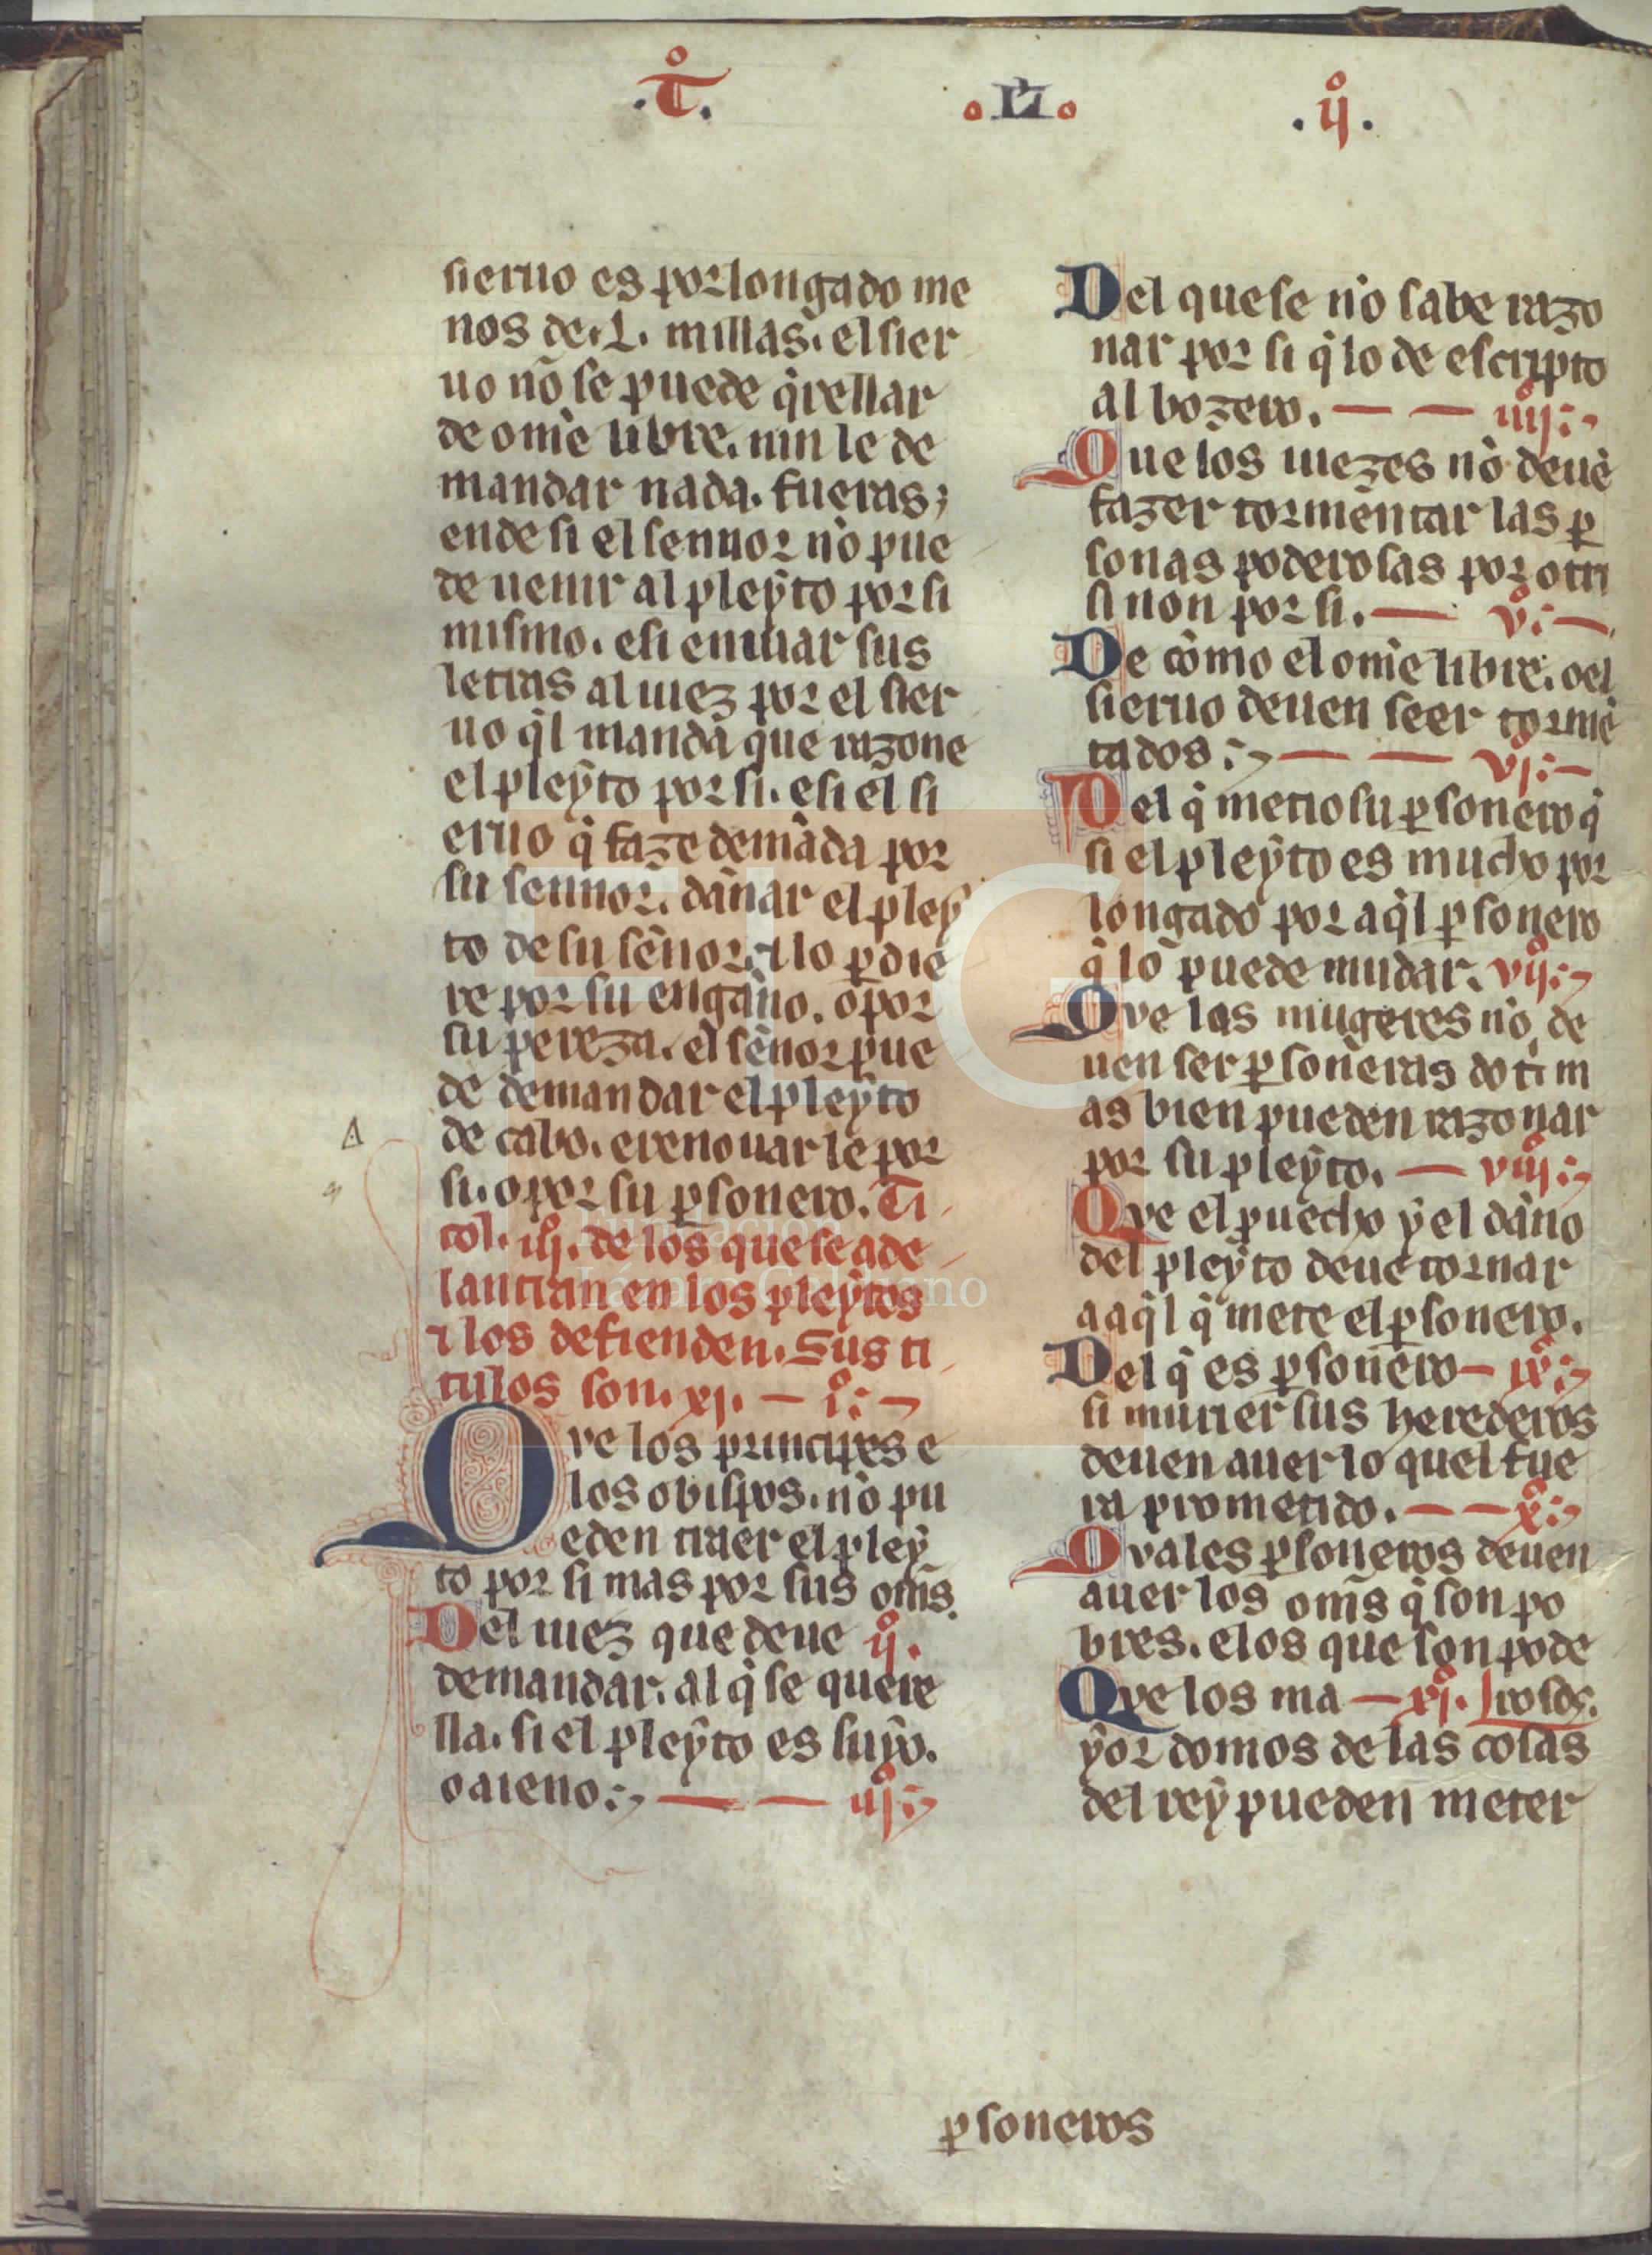 .T̊. .LI. .ij̊.
sieruo es porlongado me
nos de .L. millas. el sier
uo nõ se puede q̃rellar
de om̃e libre. nin le de
mandar nada. fueras
ende si el sennor nõ pue
de uenir al pleyto por si
mismo. e si enuiar sus
letras al iuez por el sier
uo q̃l manda que razone
el pleyto por si. e si el si
eruo q̃ faze demãda por
su sennor. dãnar el pley
to de su sẽnor. ⁊ lo ꝑdie
re por su engãno. o por
su pereza. el sẽnor pue
de demandar el pleyto
de cabo. e renouar le por
si. o por su ꝑsonero. Ti
tol. iij̊. de los que se ade
lantran en los pleytos
⁊ los defienden. Sus ti
tulos son. xj. — i̊
Qve los principes e
los obispos. nõ pu
eden traer el pley
to por si mas por sus om̃s.
Del iuez que deue ij̊.
demandar. al q̃ se quere
lla. si el pleyto es suyo.
o aieno — — iij̊
Del que se nõ sabe razo
nar por si q̃ lo de escripto
al bozero. — — iiij̊
Que los iuezes nõ deuẽ
fazer tormẽntar las ꝑ
sonas poderosas por otri
si non por si. — v̊ —
De cõmo el om̃e libre. o el
sieruo deuen seer tormẽ
tados — — vj̊ —
Del q̃ metio su ꝑsonero q̃
si el pleyto es mucho por
longado por aq̃l ꝑsonero
q̃ lo puede mudar. vij̊
Qve las mugeres nõ de
uen ser ꝑsoneras dotr̃ m
as bien pueden razonar
por su pleyto. — viij̊
Qve el puecho y el dãno
del pleyto deue tornar
a aq̃l q̃ mete el ꝑsonero.
Del q̃ es ꝑsonero — ix̊
si murier sus herederos
deuen auer lo quel fue
ra prometido. — — x̊
Qvales ꝑsoneros deuen
auer los om̃s q̃ son po
bres. e los que son pode
Qve los ma — xj̊. rosos.
yordomos de las cosas
del rey pueden meter
ꝑsoneros